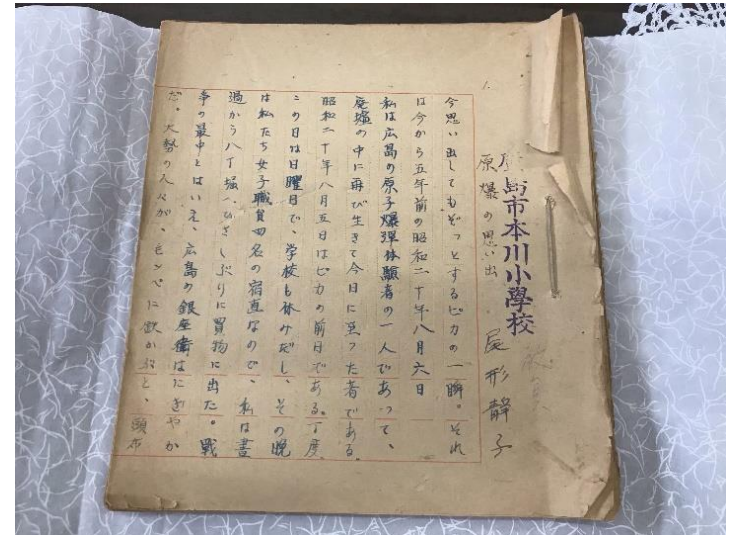 島市本川小學校
原爆の思い出
尾形静子
今思い出してもぞっとするピカの一瞬。それ
は今から五年前の昭和二十年八月六日
私は広島の原子爆弾体驗者の一人であって、
廃墟の中に再び生きて今日に至った者である。
昭和二十年八月五日はピカの前日である。丁度
この日は日曜日で、学校も休みだし、その晩
は私たち女子職員四名の宿直なので、私は昼
過から八丁堀へひさしぶりに買物に出た。戰
争の最中とはいえ、広島の銀座街はにぎやか
だ。大勢の人々が、モンペに鉄かぶと、頭巾